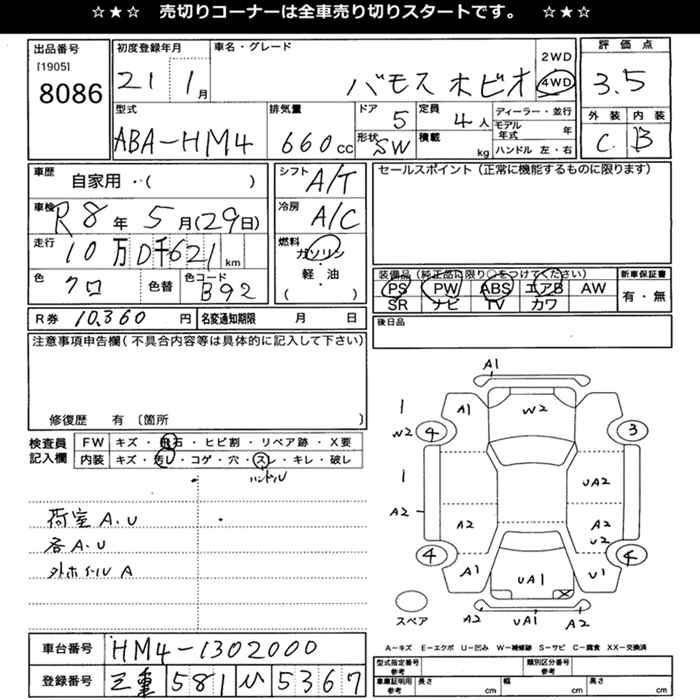 ☆★☆ 売切りコーナーは全車売り切りスタートです。 ☆★☆
出品番号
[1905]
8086
初度登録年月
21 1月
車名・グレード
バモス ホビオ
2WD
4WD
評価点
3.5
外装 内装
C B
型式
ABA-HM4
排気量
660cc
ドア 5
形状 SW
定員 4人
積載 kg
ディーラー・並行
モデル年式 年
ハンドル 左・右
車歴
自家用・( )
車検
R8年5月(29日)
走行
10万0千621km
色
クロ
色替
色コード
B92
シフト
A/T
冷房
A/C
燃料
ガソリン
・
軽・油
( )
R券 10,360円
名変通知期限 月 日
セールスポイント(正常に機能するものに限ります)
装備品(純正品に限り○をつけてください)
PS PW ABS エアB AW
SR ナビ TV カワ
新車保証書
有・無
後日品
注意事項申告欄(不具合内容等は具体的に記入して下さい)
修復歴 有〔箇所 〕
検査員
記入欄
FW キズ・飛石・ヒビ割・リペア跡・X要
内装 キズ・汚レ・コゲ・穴・スレ・キレ・破レ
ハンドル
荷室 A.U
各 A.U
外ホイール A
A1
A1 W2
1
W2 4 3
1
UA2
A2
A2 A2
U2
4 4
A1 UA1 U1
スペア
A2 UA1 A2
A-キズ E-エクボ U-凹み W-補修跡 S-サビ C-腐食 XX-交換済
車台番号 HM4-1302000
登録番号 三重 581 い 5367
型式指定番号
参考
類別区分番号
参考
車庫証明用
参考
長さ cm
幅 cm
高さ cm